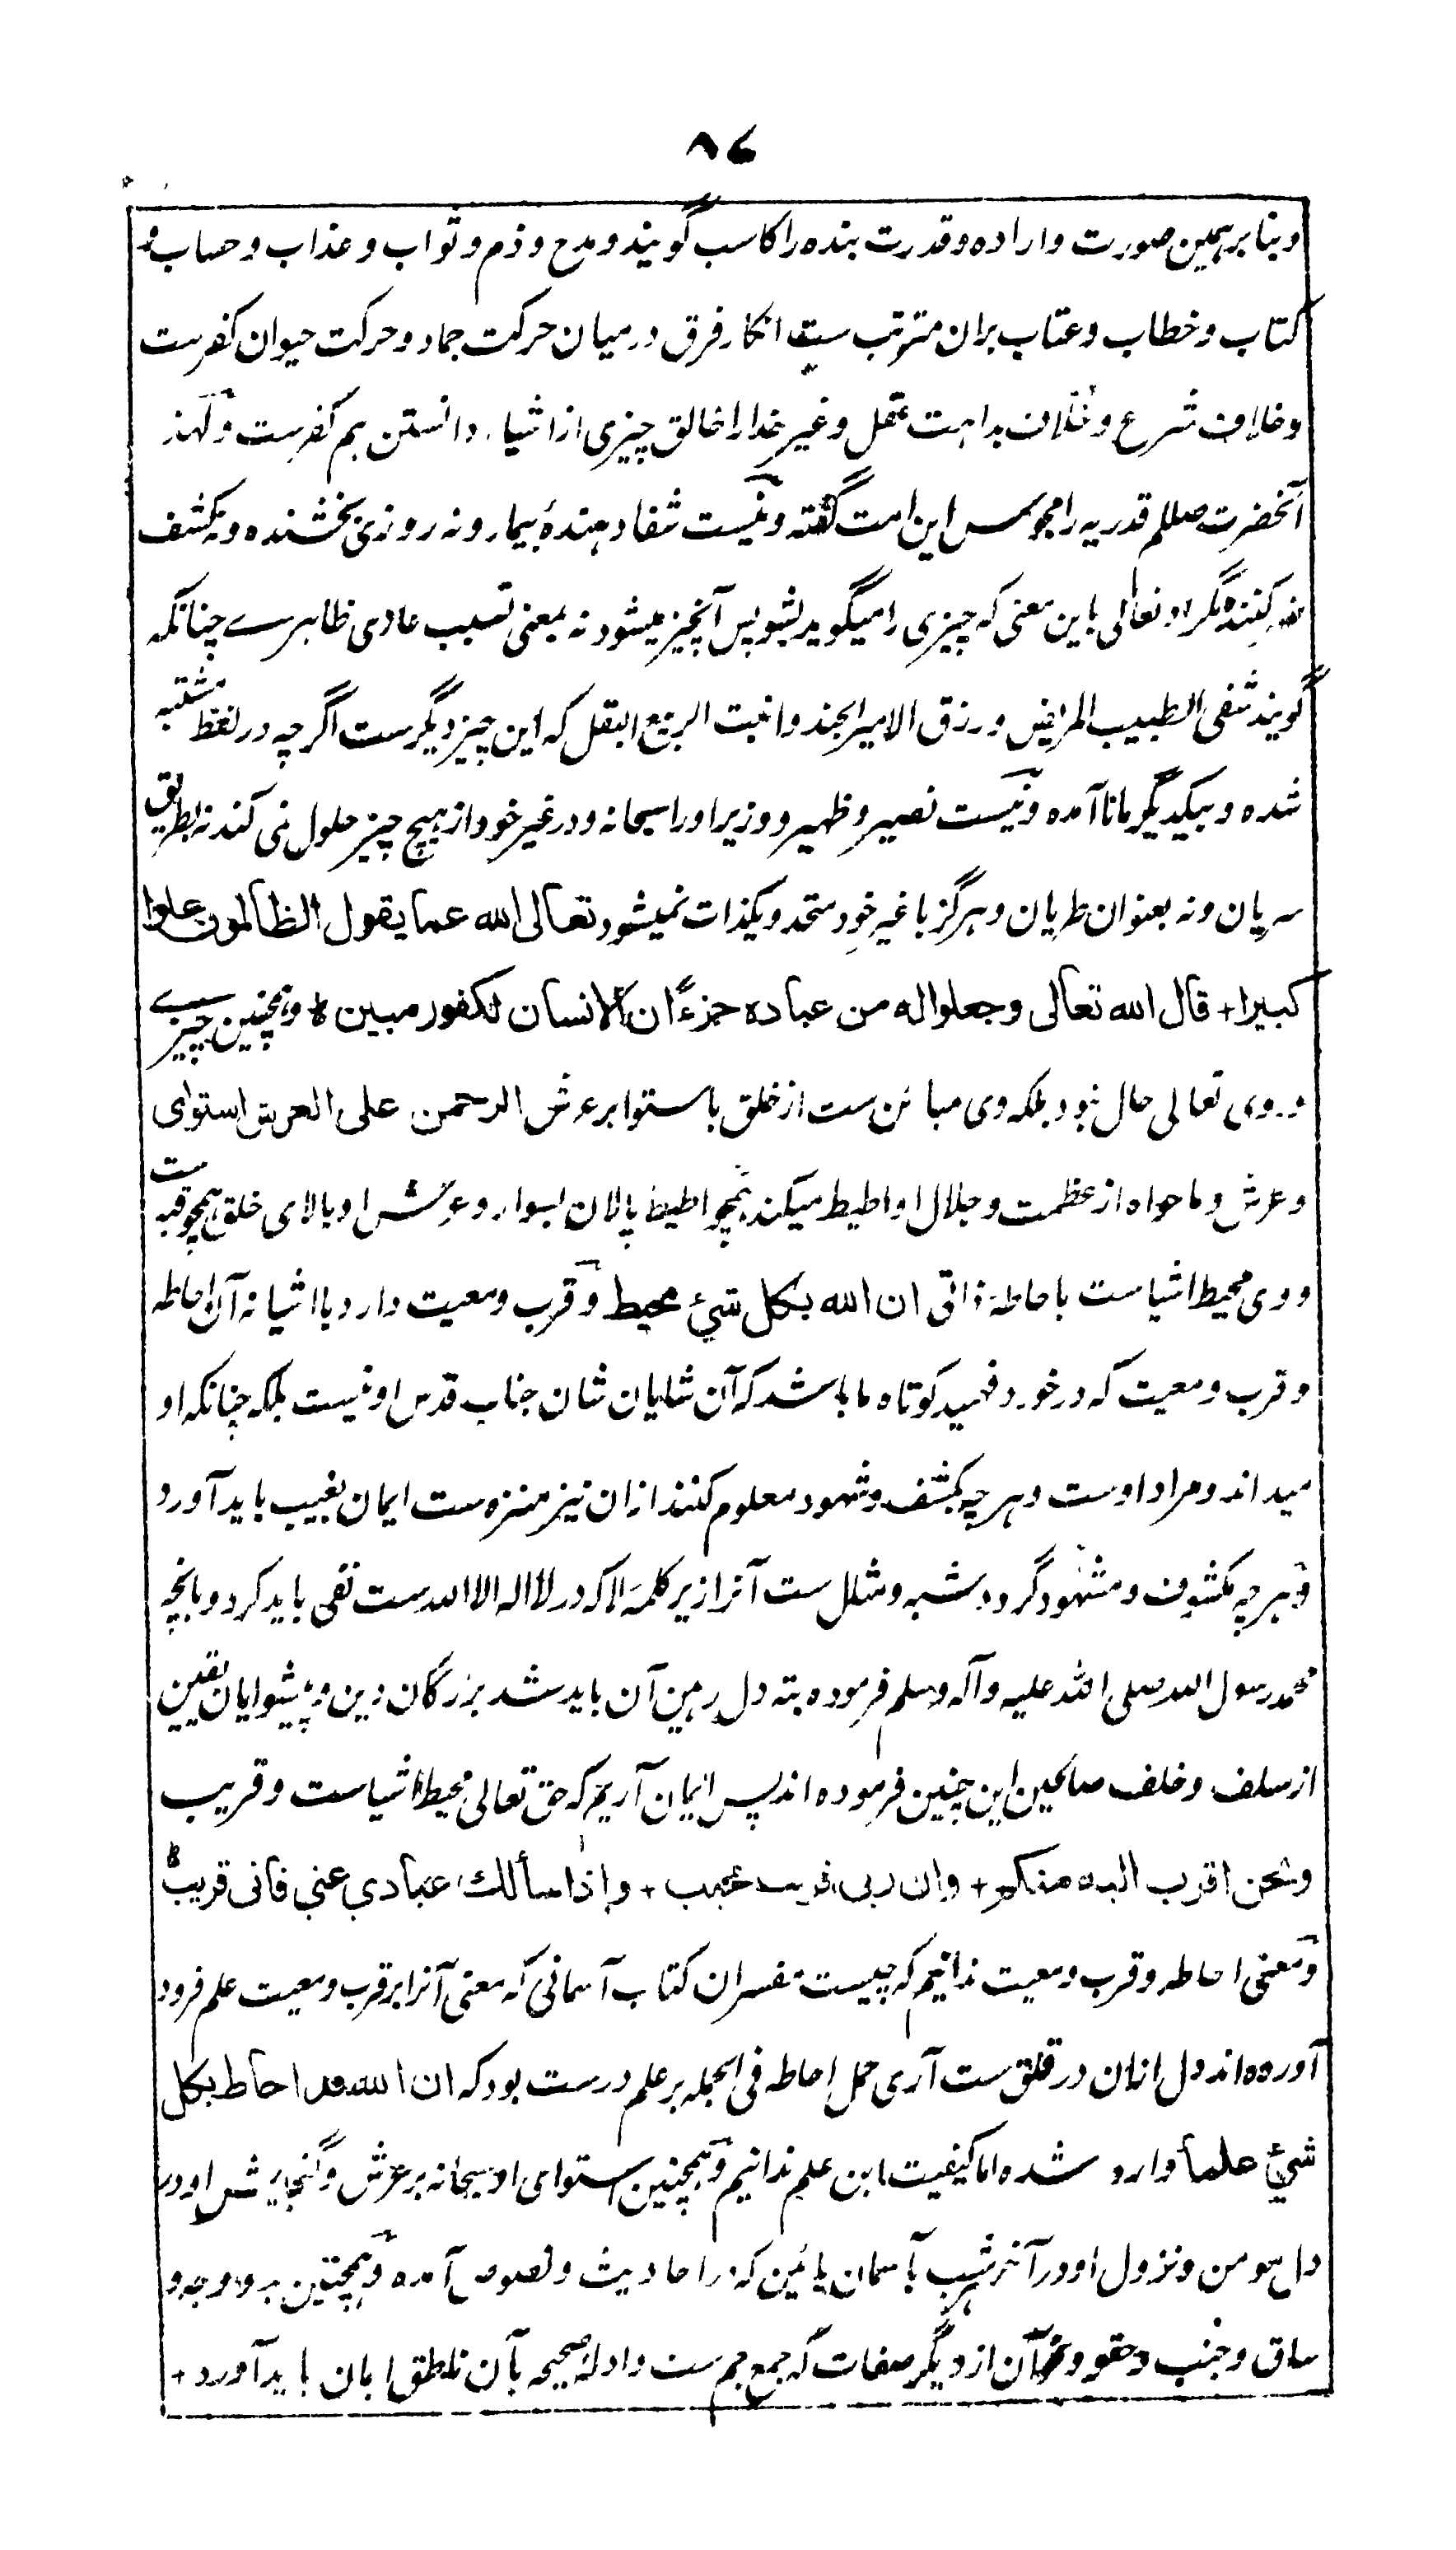 ٨٤
وبنابر همین صورت واراده وقدرت بنده را کاسب گویند و مدح و ذم و ثواب و عذاب و حساب و
کتاب و خطاب و عتاب بران مترتب ست انکار فرق درمیان حرکت جماد و حرکت حیوان کفرست
و خلاف شرع و خلاف بداهت عقل و غیر خدا را خالق چیزی از اشیاء دانستن هم کفرست و لهذ
آنحضرت صللم قدریه را مجوس این امت گفته و نیست شفا دهندهٔ بیمار و نه روزی بخشنده و نه کشف
ضر کننده مگر او تعالی باین معنی که چیزی را میگوید بشو پس آنچیز میشود نه بمعنی تسبب عادی ظاهرے چنانکه
گویند شفی الطبیب المریض و رزق الامیر الجند و انبت الربیع البقل که این چیز دیگرست اگرچه در لفظ مشتبه
شده و بیکدیگر مانا آمده و نیست نصیر و ظهیر و وزیر او را سبحانه و در غیر خود از هیچ چیز حلول نمی کند نه بطریق
سریان و نه بعنوان طریان و هرگز با غیر خود متحد و یکذات نمیشود تعالی الله عما یقول الظالمون علوا
کبیرا + قال الله تعالی وجعلوا له من عباده جزءً ان الانسان لکفور مبین ه و همچنین چیزے
در وی تعالی حال نبود بلکه وی مبائن ست از خلق باستوا بر عرش الرحمن علی العرش استوای
و عرش و ما حواه از عظمت و جلال او اطیط میکند همچو اطیط پالان بسوار و عرش او بالای خلق همچو قبه ست
و وی محیط اشیاست باحاطهٔ ذاتی ان الله بکل شیء محیط و قرب و معیت دارد با اشیا نه آن احاطه
و قرب و معیت که در خورد فهمید کوتاه ما باشد که آن شایان شان جناب قدس او نیست بلکه چنانکه او
میداند و مراد اوست و هرچه بکشف و شهود معلوم کنند ازان نیز منزه ست ایمان بغیب باید آورد
و هرچه مکشوف و مشهود گردد شبه و مثل ست آنرا زیر کلمهٔ لا که در لا اله الا الله ست نفی باید کرد و بانچه
محمد رسول الله صلی الله علیه و آله وسلم فرموده بته دل رهین آن باید شد بزرگان دین و پیشوایان یقین
از سلف و خلف صالحین این چنین فرموده اند پس ایمان آریم که حق تعالی محیط اشیاست و قریب
ونحن اقرب الیه منکم + وان ربی قریب مجیب + واذا سألك عبادي عني فاني قریب ط
و معنی احاطه و قرب و معیت ندانیم که چیست مفسران کتاب آسمانی که معنی آنرا بر قرب و معیت علم فرود
آورده اند دل ازان در قلق ست آری حمل احاطه فی الجمله بر علم درست بود که ان الله قد احاط بکل
شيء علماً وارد شده اما کیفیت این علم ندانیم و همچنین استوای او سبحانه بر عرش و گنجایش او در
دل مومن و نزول او در آخر شب بآسمان پائین که در احادیث و نصوص آمده و همچنین ید و وجه و
ساق و جنب و حقو و جز آن از دیگر صفات که جمع جم ست و ادلهٔ صحیحه بآن ناطق ایمان باید آورد +